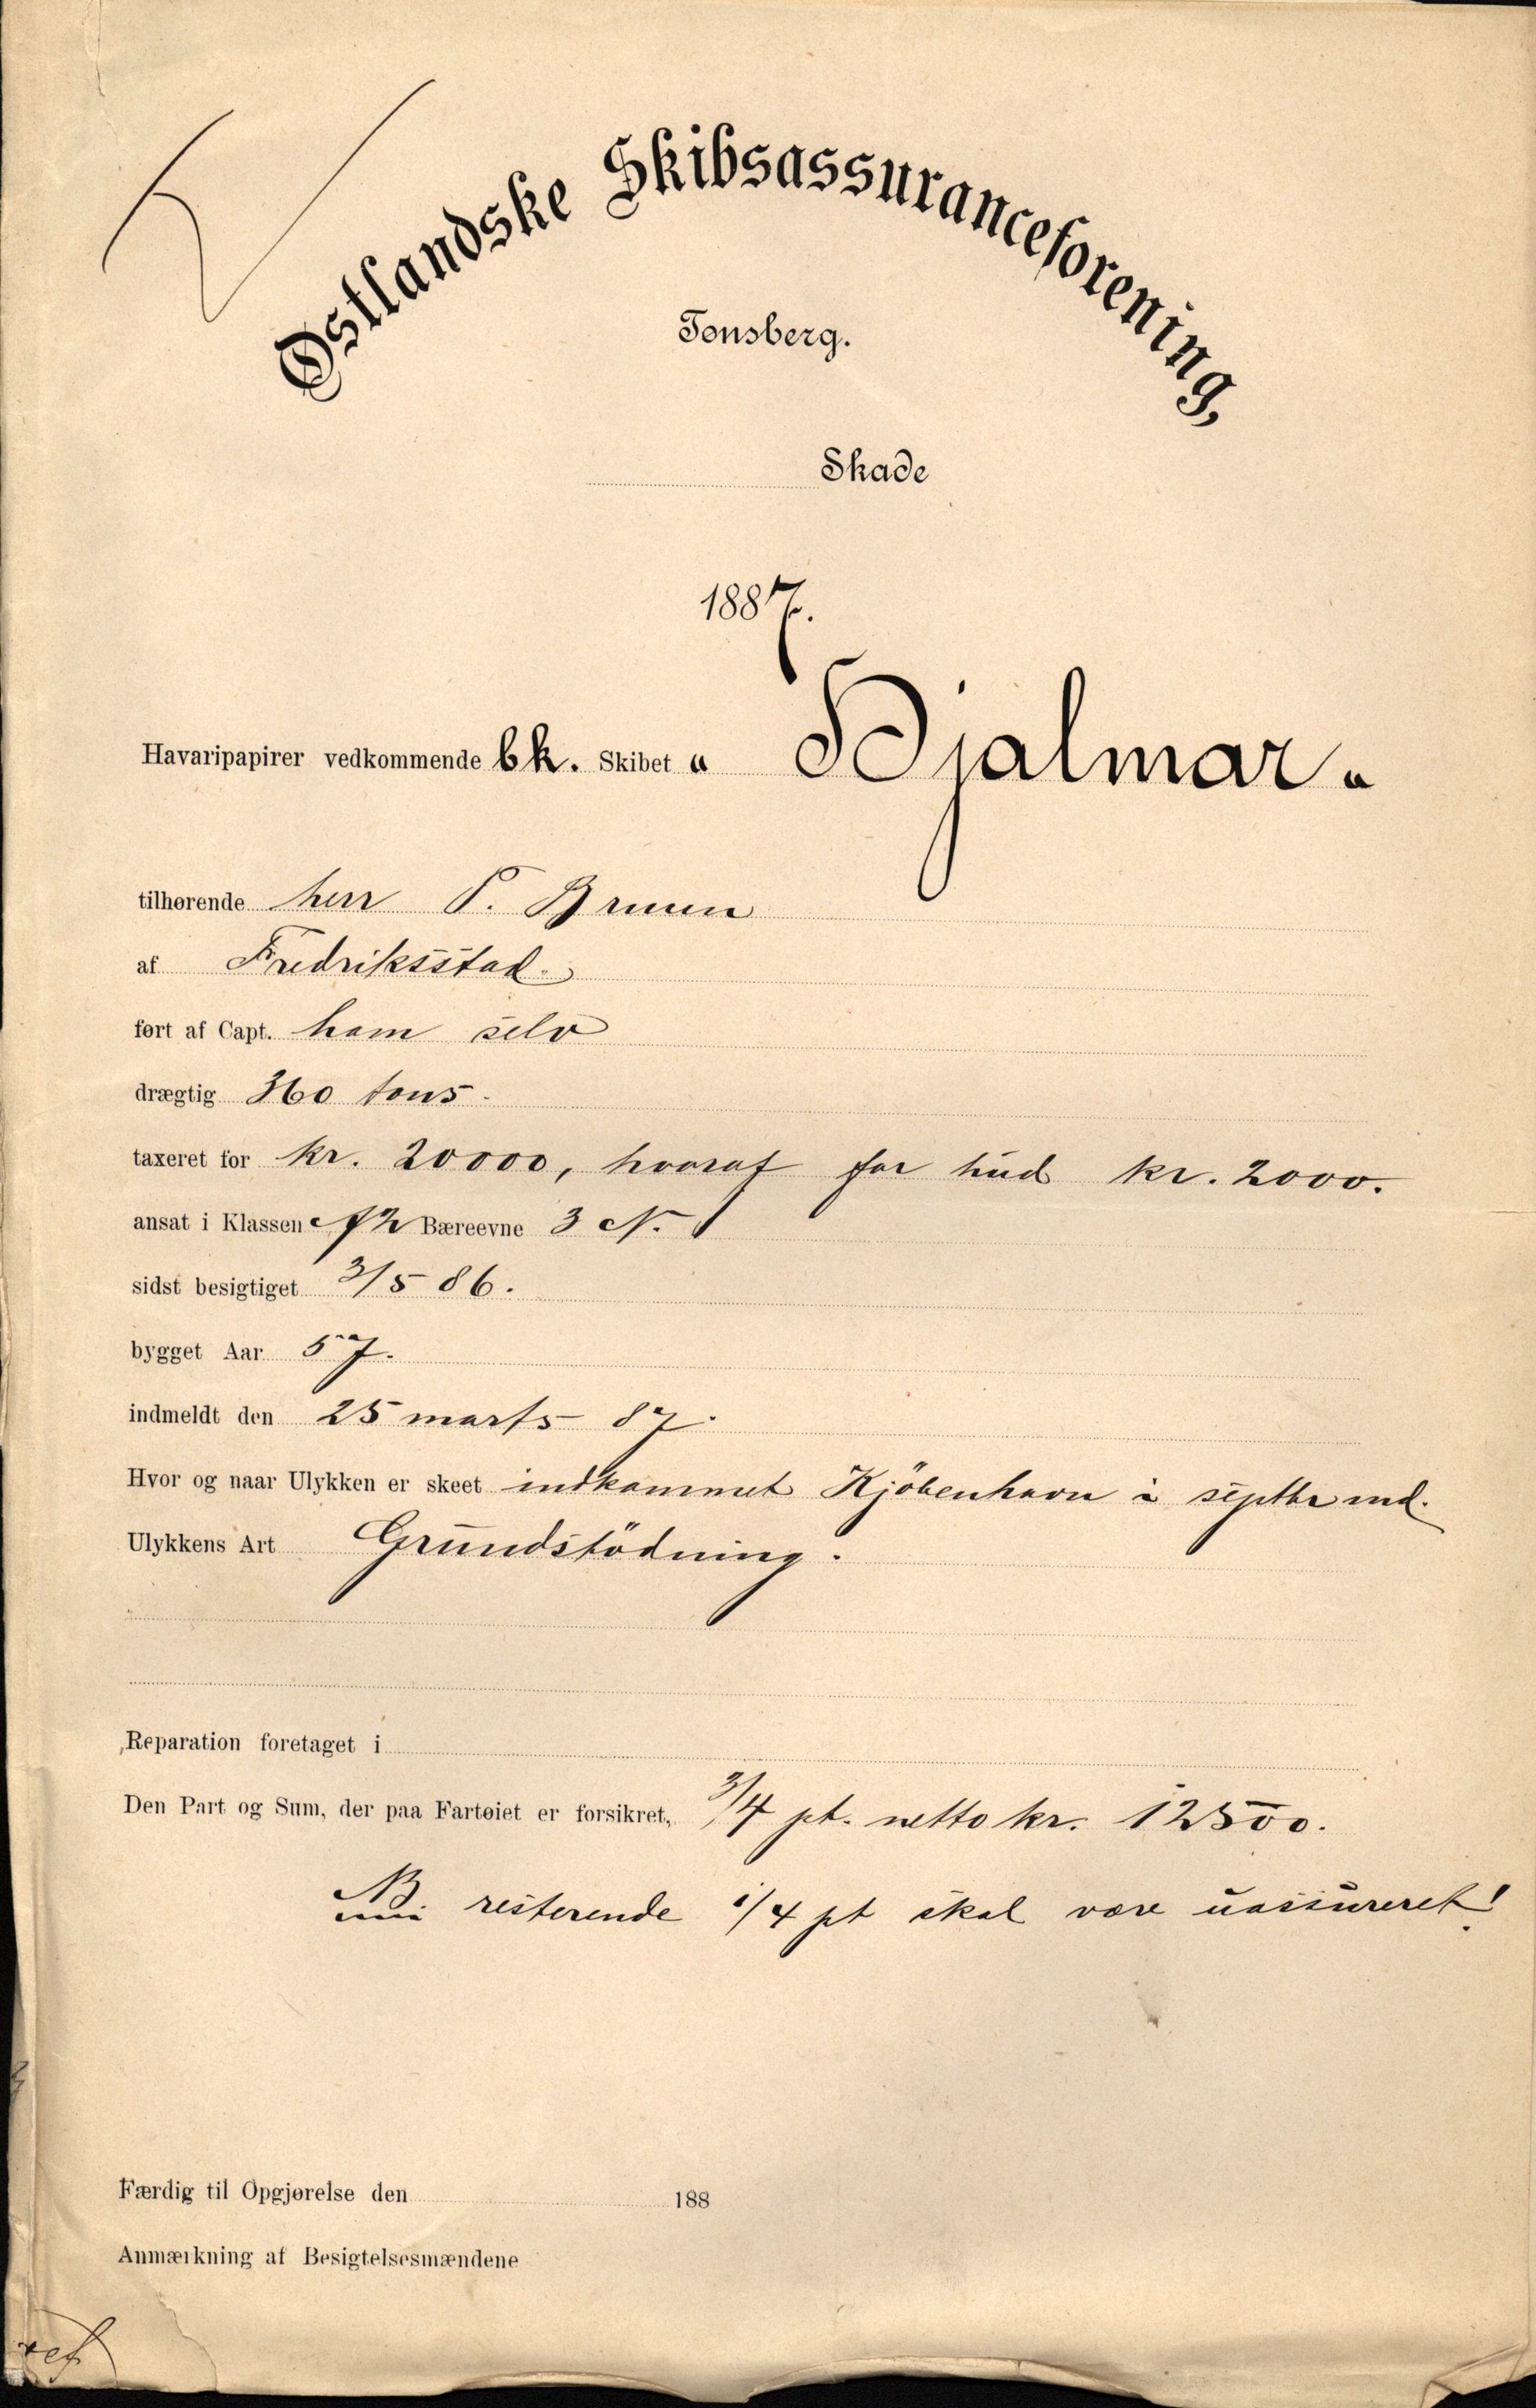 Østlandske Skibsassuranceforening,
Tønsberg.
Skade
1887.
Havaripapirer vedkommende bk. Skibet " Hjalmar "
tilhørende herr P. Bruun
af Fredriksstad.
ført af Capt. ham selv
drægtig 360 tons.
taxeret for kr. 20000, hvoraf for hud kr. 2000.
ansat i Klassen A2 Bæreevne 3 N.
sidst besigtiget 3/5 86.
bygget Aar 57.
indmeldt den 25 marts 87.
Hvor og naar Ulykken er skeet indkommet Kjöbenhavn i septbr md.
Ulykkens Art Grundstödning.
Reparation foretaget i
Den Part og Sum, der paa Fartøiet er forsikret, 3/4 pt. netto kr. 12500.
NB resterende 1/4 pt skal være uassureret!
Færdig til Opgjørelse den 188
Anmærkning af Besigtelsesmændene